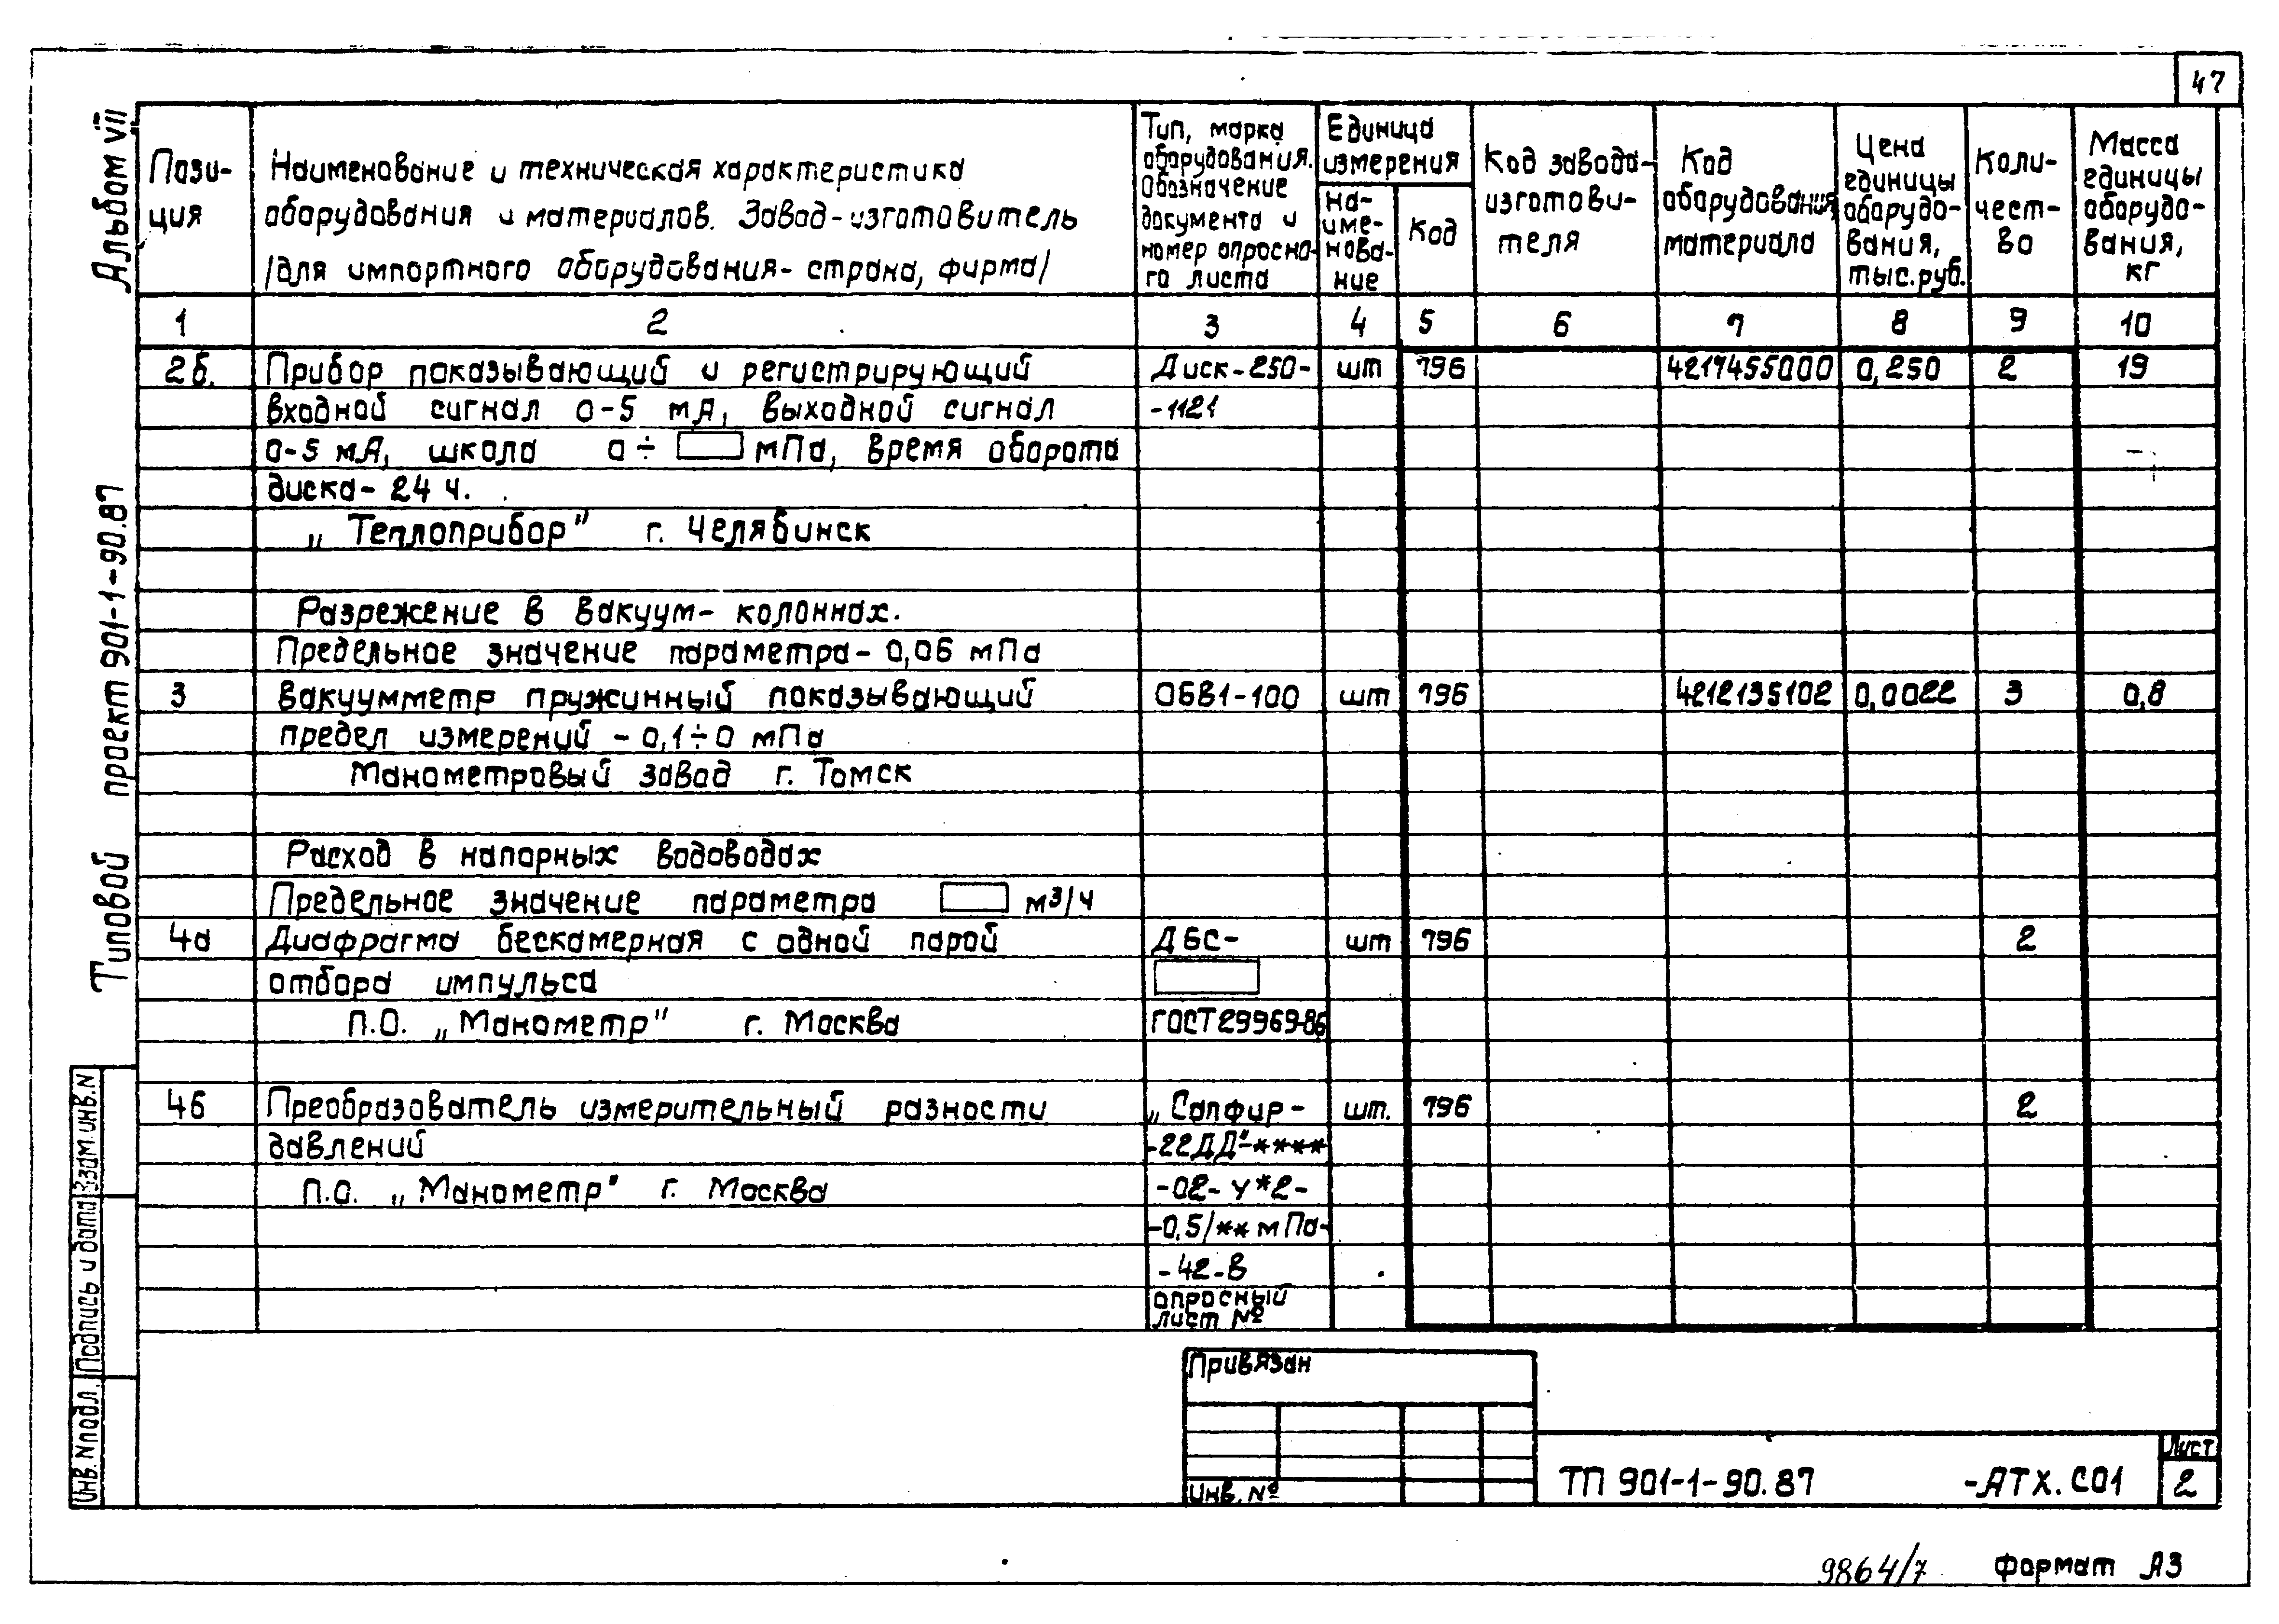 47
Альбом VII
Типовой проект 901-1-90.87
Пози-
ция
Наименование и техническая характеристика
оборудования и материалов. Завод-изготовитель
/для импортного оборудования- страна, фирма/
Тип, марка
оборудования.
Обозначение
документа и
номер опросно-
го листа
Единица
измерения
На-
име-
нова-
ние
Код
Код завода-
изготови-
теля
Код
оборудования
материала
Цена
единицы
оборудо-
вания,
тыс.руб.
Коли-
чест-
во
Масса
единицы
оборудо-
вания,
кг
1 2 3 4 5 6 7 8 9 10
2б. Прибор показывающий и регистрирующий Диск-250- шт 796 4217455000 0,250 2 19
входной сигнал 0-5 мА, выходной сигнал -1121
0-5 мА, шкала 0÷ мПа, время оборота
диска- 24 ч.
„Теплоприбор" г. Челябинск
Разрежение в вакуум- колоннах.
Предельное значение параметра- 0,06 мПа
3 Вакуумметр пружинный показывающий ОБВ1-100 шт 796 4212135102 0,0022 3 0,8
предел измерений -0,1÷0 мПа
Манометровый завод г. Томск
Расход в напорных водоводах
Предельное значение параметра м3/ч
4а Диафрагма бескамерная с одной парой ДБС- шт 796 2
отбора импульса
П.О. „Манометр" г. Москва ГОСТ29969-86
4б Преобразователь измерительный разности „Сапфир- шт. 796 2
давлений -22ДД"-****
П.О. „Манометр" г. Москва -02- У*2-
-0,5/** мПа-
-42-В
опросный
лист №
Привязан
Инв. №
ТП 901-1-90.87 -АТХ.СО1
Лист
2
Взам.инв.N
Подпись и дата
Инв.Nподл.
9864/7
Формат А3